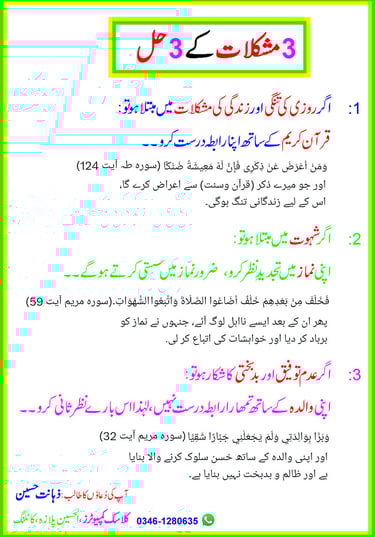 3 مشکلات کے 3 حل
1: اگر روزی کی تنگی اور زندگی کی مشکلات میں مبتلا ہو تو:
قرآن کریم کے ساتھ اپنا رابطہ درست کرو۔۔
وَمَنْ أَعْرَضَ عَن ذِكْرِى فَإِنَّ لَهُ مَعِيشَةً ضَنكًا (سورہ طہ آیت 124)
اور جو میرے ذکر (قرآن وسنت) سے اعراض کرے گا،
اس کے لیے زندگانی تنگ ہوگی۔
2: اگر شہوت میں مبتلا ہو تو:
اپنی نماز میں تجدید نظر کرو، ضرور نماز میں سستی کرتے ہو گے۔۔
فَخَلَفَ مِن بَعدِهِم خَلفٌ أضاعُوا الصَّلاةَ وَاتَّبَعُوا الشَّهَوَاتِ۔(سورہ مریم آیت 59)
پھر ان کے بعد ایسے نااہل لوگ آئے، جنہوں نے نماز کو
برباد کر دیا اور خواہشات کی اتباع کر لی.
3: اگر عدم توفیق اور بدبختی کا شکار ہو تو؛
اپنی والدہ کے ساتھ تمھارا رابطہ درست نہیں، لہٰذا اس بارے نظر ثانی کرو۔۔
وَبَرًّا بِوَالِدَتِي وَلَمْ يَجْعَلْنِي جَبَّارًا شَقِيًّا (سورہ مریم آیت 32)
اور اپنی والدہ کے ساتھ حُسن سلوک کرنے والا بنایا
ہے اور ظالم و بدبخت نہیں بنایا ہے.
آپ کی دُعاؤں کا طالب: ذہانت حسین
کلاسک کمپیوٹرز، الحسین پلازہ، کانٹنگ 0346-1280635